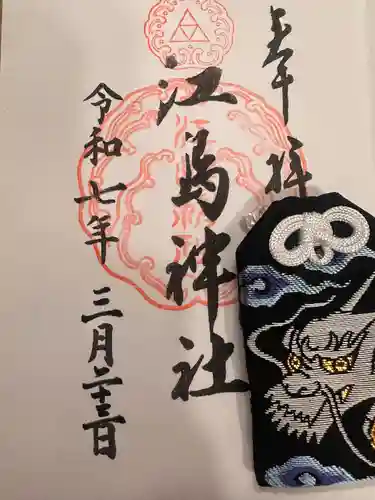 奉拝
江島神社
令和七年 三月二十三日